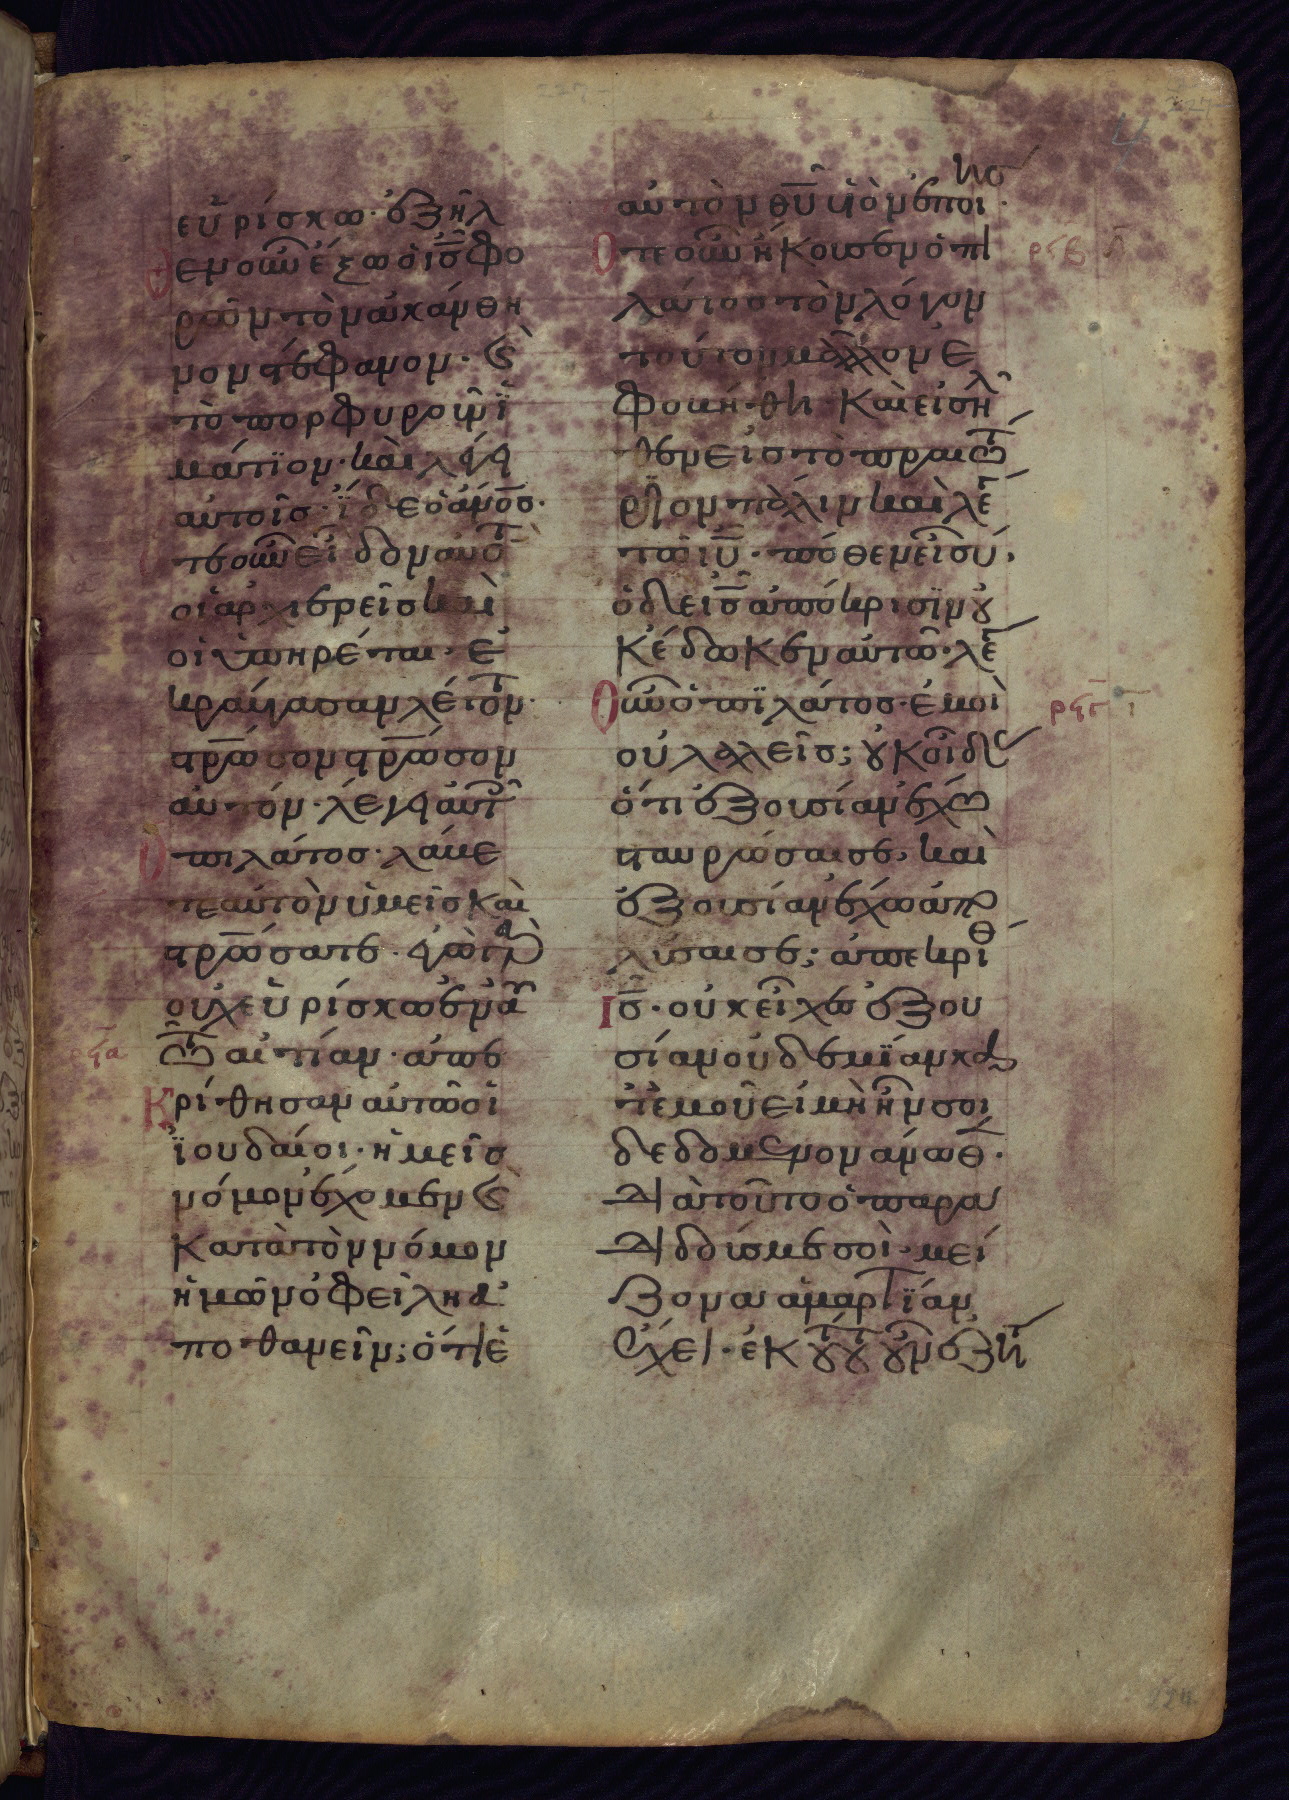 εὑρίσκω· ἐξῆλ
θεν οὖν ἔξω ὁ ις φο
ρῶν τὸν ἀκάνθι
νον στέφανον· καὶ
τὸ πορφυροῦν ἱ
μάτιον· καὶ λέγει
αὐτοῖς· ἴδε ὁ ανος·
ὅτε οὖν εἶδον αὐτ
οἱ ἀρχιερεῖς καὶ
οἱ ὑπηρέται· ἐ
κραύγασαν λέγοντ
στρωσον στρωσον
αὐτόν· λέγει αὐτ
ὁ πιλάτος· λάβε
τε αὐτὸν ὑμεῖς καὶ
στρώσατε· ἐγὼ γὰρ
οὐχ εὑρίσκω ἐν αὐ
ρϟα τῶ αἰτίαν· ἀπε
κρίθησαν αὐτῶ οἱ
ἰουδαίοι· ἡμεῖς
νόμον ἔχομεν καὶ
κατὰ τὸν νόμον
ἡμῶν ὀφείλει ἀ
ποθανεῖν; ὅτι ἑ
αυτὸν θυ υἱὸν ἐποί
ησ
ὅτε οὖν ἤκουσεν ὁ πι
λάτος τὸν λόγον
τοῦτον μᾶλλον ἐ
φοβήθη καὶ εἰσῆλ
θεν εἰς τὸ πραιτώ
ριον πάλιν καὶ λέγ
τῶ ιυ· πόθεν εἶ σύ·
ὁ δὲ ις ἀπόκρισιν οὐ
κ ἔδωκεν αὐτῶ· λέγ
οὖν ὁ πιλάτος· ἐμοὶ ρϟγ
οὐ λαλεῖς; οὐκ οἶδας
ὅτι ἐξουσίαν ἔχω
σταυρώσαι σε, καὶ
ἐξουσίαν ἔχω ἀπο
λύσαι σε; ἀπεκρίθ
ις· οὐκ εἶχες ἐξου
σίαν οὐδεμίαν κα
τ' ἐμοῦ εἰ μὴ ἦν σοι
δεδομένον ἄνωθ·
διὰ τοῦτο ὁ παρα
διδούς με σοὶ· μεί
ζονα ἁμαρτίαν
ἔχει· ἐκ τούτου οὖν ἐζήτ